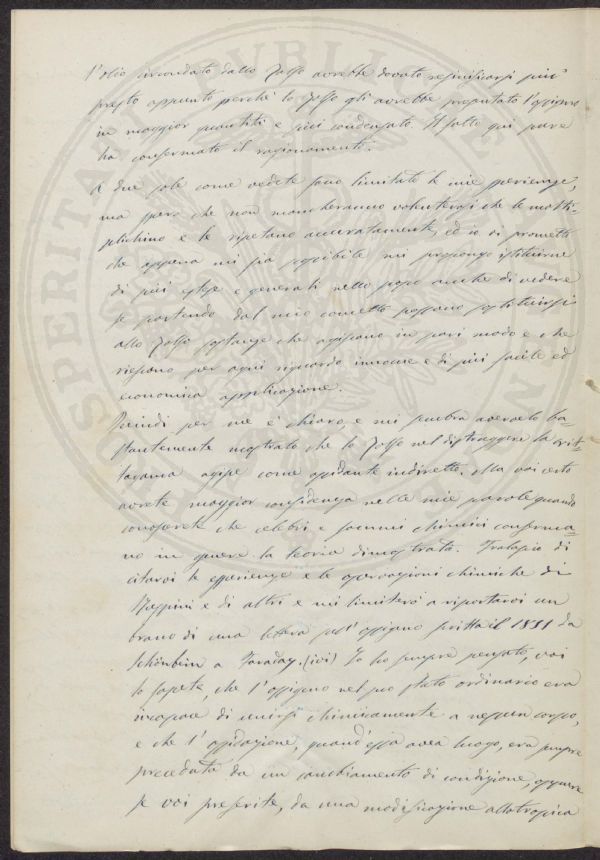 l'olio circondato dallo Zolfo avrebbe dovuto resinificarsi più
presto appunto perchè lo Zolfo gli avrebbe preparato l'ossigeno
in maggior quantità e più condensato. Il fatto qui pure
ha confermato il ragionamento.
A due sole come vedete sono limitate le mie sperienze,
ma spero che non mancheranno volenterosi che le molti-
plichino e le ripetano accuratamente, ed io vi prometto
che appena mi sia possibile mi propongo istituirne
di più estese e generali nello scopo anche di vedere
se partendo dal mio concetto possano sostituirsi
allo Zolfo sostanze che agiscano in pari modo e che
riescano per ogni riguardo innocue e di più facile ed
economica applicazione.
Quindi per me è chiaro, e mi sembra avervelo ba-
stantemente mostrato che lo Zolfo nel distruggere la crit-
togama agisce come ossidante indiretto. Ma voi certo
avrete maggior confidenza nelle mie parole quando
conoscerete che celebri e sommi chimici conferma-
no in genere la teoria dimostrata. Tralascio di
citarvi le esperienze e le operazioni chimiche di
e di altri e mi limiterò a riportarvi un
brano di una lettera sull'ossigeno scritta il 1851 da
Schönbein a Faraday. (ivi) Io ho sempre pensato, voi
lo sapete, che l'ossigeno nel suo stato ordinario era
incapace di unirsi chimicamente a nessun corpo,
e che l'ossidazione, quand'essa avea luogo, era sempre
preceduta da un cambiamento di condizione, oppure
se voi preferite, da una modificazione allotropica